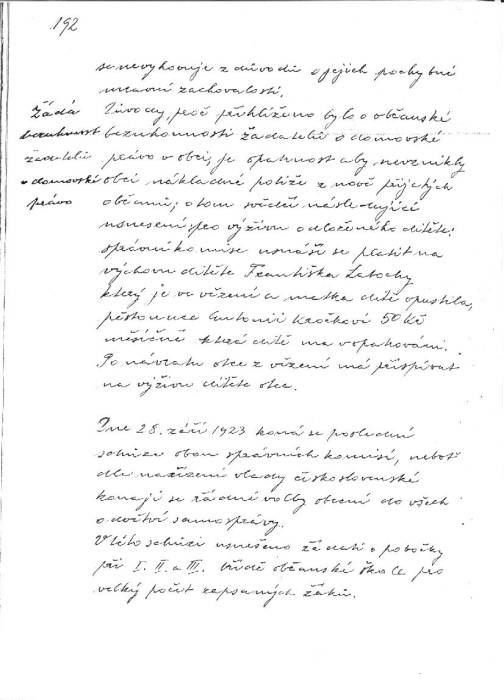 192
se nevyhovuje z důvodů o jejich pochybné
mravní zachovalosti.
Žádá
bezúhonnost
žadatelů
o domovské
právo
Důvody, proč přihlíženo bylo o občanské
bezúhonnosti žadatelů o domovské
právo v obci, je opatrnost aby nevznikly
obci nákladné potíže z nově přijatých
občanů; o tom svědčí následující
usnesení pro výživu odloženého dítěte:
správní komise usnáší se platit na
výchovu dítěte Františka Latochy
který je ve vězení a matka dítě opustila,
pěstounce Antonii Kročkové 50 Kč
měsíčně která dítě má v opatrování.
Po návratu otce z vězení má přispívat
na výživu dítěte otec.
Dne 28. září 1923 koná se poslední
schůze obou správních komisí, neboť
dle nařízení vlády československé
konají se řádné volby obecní do všech
odvětví samosprávy.
V této schůzi usnešeno žádati o pobočky
při I. II. a III. třídě občanské škole pro
velký počet zapsaných žáků.